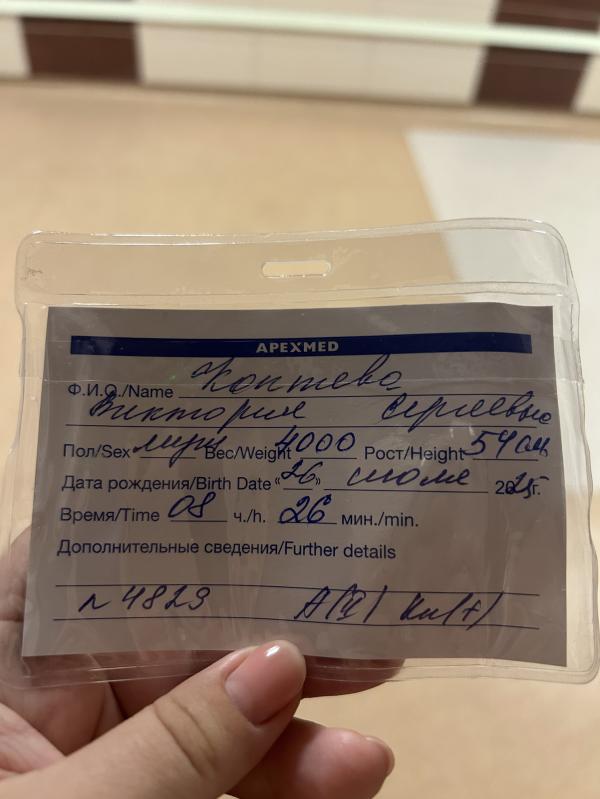 APEXMED
Ф.И.О./Name Коптева
Виктория Сергеевна
Пол/Sex муж Вес/Weight 4000 Рост/Height 54 см
Дата рождения/Birth Date «26» июля 2025г.
Время/Time 08 ч./h. 26 мин./min.
Дополнительные сведения/Further details
л 4829 A(II) (+)